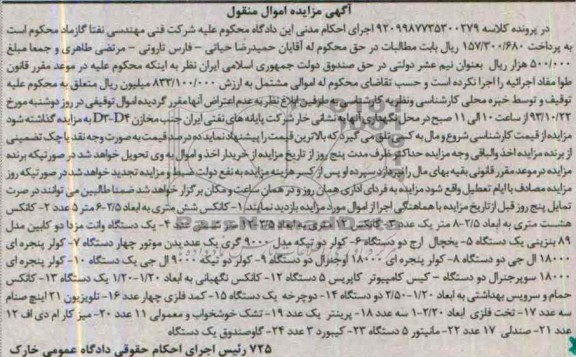 آگهی مزایده اموال منقول
در پرونده کلاسه ۹۲۰۹۹۸۷۷۳۵۳۰۰۲۷۹ اجرای احکام مدنی این دادگاه محکوم علیه شرکت فنی مهندسی نفتا گازماد محکوم است
به پرداخت ۱۵۷/۳۰۰/۶۸۰ ریال بابت مطالبات در حق محکوم له آقایان حمیدرضا حیاتی - فارس تاروتی - مرتضی طاهری و جمعا مبلغ
۵۰۰/۰۰۰ هزار ریال بعنوان نیم عشر دولتی در حق صندوق دولت جمهوری اسلامی ایران نظر به اینکه محکوم علیه در موعد مقرر قانون
طوا مفاد اجرائیه را اجرا نکرده است و حسب تقاضای محکوم له اموالی مشتمل به ارزش ۸۳۳/۱۰۰/۰۰۰ میلیون ریال متعلق به محکوم علیه
توقیف و توسط خبره محلی کارشناسی ونظریه کارشناسی به طرفین ابلاغ نظر به عدم اعتراض آنها مقرر گردیده اموال توقیفی در روز دوشنبه مورخ
۹۳/۱۰/۲۲ از ساعت ۱۰ الی ۱۱ صبح در محل نگهداری به نشانی خارک شرکت پایانه های نفتی ایران جنب مخازن D۳-D۴ به مزایده گذاشته شود
مزایده از قیمت کارشناسی شروع و مال به کسی تعلق می گیرد که بالاترین قیمت را پیشنهاد نماید ده درصد قیمت به صورت وجه نقد یا چک تضمینی
از برنده مزایده اخذ والباقی وجه مزایده حداکثر ظرف مدت پنج روز از تاریخ مزایده از خریدار اخذ و اموال به وی تحویل خواهد شد در صورتیکه برنده
مزایده در موعد مقرر قانونی بقیه بهای مال را نپردازد سپرده او پس از کسر هزینه مزایده به نفع دولت ضبط و مزایده تجدید خواهد شد در صورتیکه روز
مزایده مصادف با ایام تعطیل واقع شود مزایده به فردای اداری همان روز و در همان ساعت و مکان برگزار خواهد شد ضمنا طالبین می توانند در صرت
تمایل پنج روز قبل از تاریخ مزایده با هماهنگی اجرا از اموال مورد مزایده بازدید نمایند. ۱- کانکس شش متری به ابعاد ۲/۵-۶ متر ۵ عدد ۲- کانکس
هشت متری به ابعاد ۲/۵-۸ متر یک عدد ۳- کانکس ۱۲ متری به ابعاد ۲/۵-۱۲ متر سه عدد ۴- یک دستگاه وانت مزدا دو کابین مدل
۸۹ بنزینی یک دستگاه ۵- یخچال ارج دو دستگاه ۶- کولر دو تیکه مدل ۹۰۰۰ گری یک عدد بدن موتور چهار دستگاه ۷- کولر پنجره ای
۱۸۰۰۰ ال جی دو دستگاه ۸- کولر پنجره ای ۱۸۰۰۰ اوجنرال دو دستگاه ۹- کولر دو تیکه ۹۰۰۰ ال جی یک دستگاه ۱۰- کولر پنجره ای
۱۸۰۰۰ سوپرجنرال دو دستگاه - کیس کامپیوتر کاپریس ۵ دستگاه ۱۲- کانکس نگهبانی به ابعاد ۱/۲۰-۱/۲۰ یک دستگاه ۱۳- کانکس
حمام و سرویس بهداشتی به ابعاد ۱/۲۰-۲/۵۰ دو دستگاه ۱۴- دوچرخه یک دستگاه ۱۵- کمد فلزی چهار عدد ۱۶- تلویزیون ۲۱ اینچ صنام
سه عدد ۱۷- تخت فلزی ابعاد ۲/۲۰-۱ سه عدد ۱۸- پرینتر یک عدد ۱۹- تشک خوشخواب و معمولی ۱۱ عدد ۲۰- میز کار ام دی اف ۱۲
عدد ۲۱- صندلی ۱۷ عدد ۲۲- مانیتور ۵ دستگاه ۲۳- کیبورد ۳ عدد ۲۴- گاوصندوق یک دستگاه
۷۲۵ رئیس اجرای احکام حقوقی دادگاه عمومی خارک